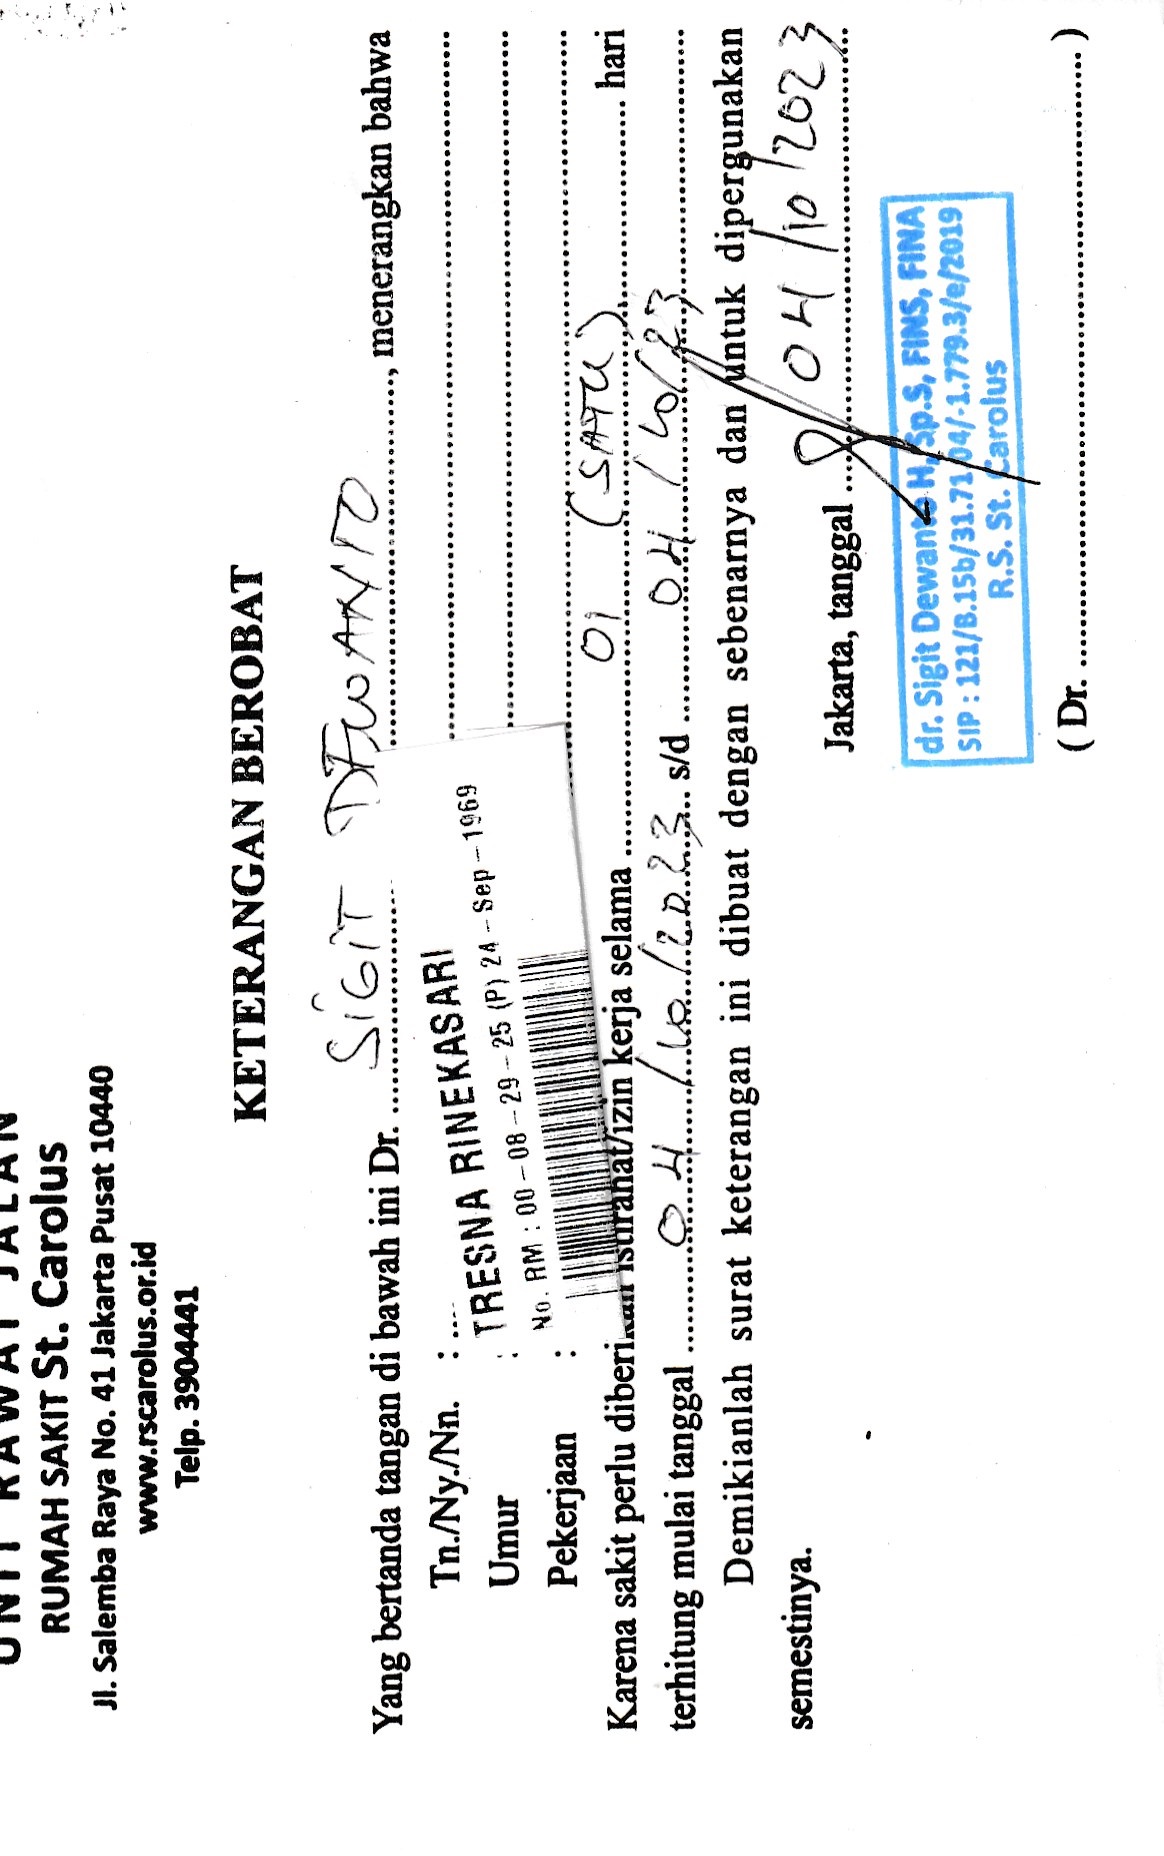 UNIT RAWAT JALAN
RUMAH SAKIT St. Carolus
Jl. Salemba Raya No. 41 Jakarta Pusat 10440
www.rscarolus.or.id
Telp. 3904441
KETERANGAN BEROBAT
Yang bertanda tangan di bawah ini Dr. SIGIT DEWANTO, menerangkan bahwa
Tn./Ny./Nn. :
TRESNA RINEKASARI
Umur :
No. RM : 00-08-29-25 (P) 24-Sep-1969
Pekerjaan :
Karena sakit perlu diberikan istirahat/izin kerja selama 01 (SATU) hari
terhitung mulai tanggal 04/10/2023 s/d 04/10/23
Demikianlah surat keterangan ini dibuat dengan sebenarnya dan untuk dipergunakan
semestinya.
Jakarta, tanggal 04/10/2023
dr. Sigit Dewanto H, Sp.S, FINS, FINA
SIP : 121/B.15b/31.71.04/-1.779.3/e/2019
R.S. St. Carolus
( Dr. )